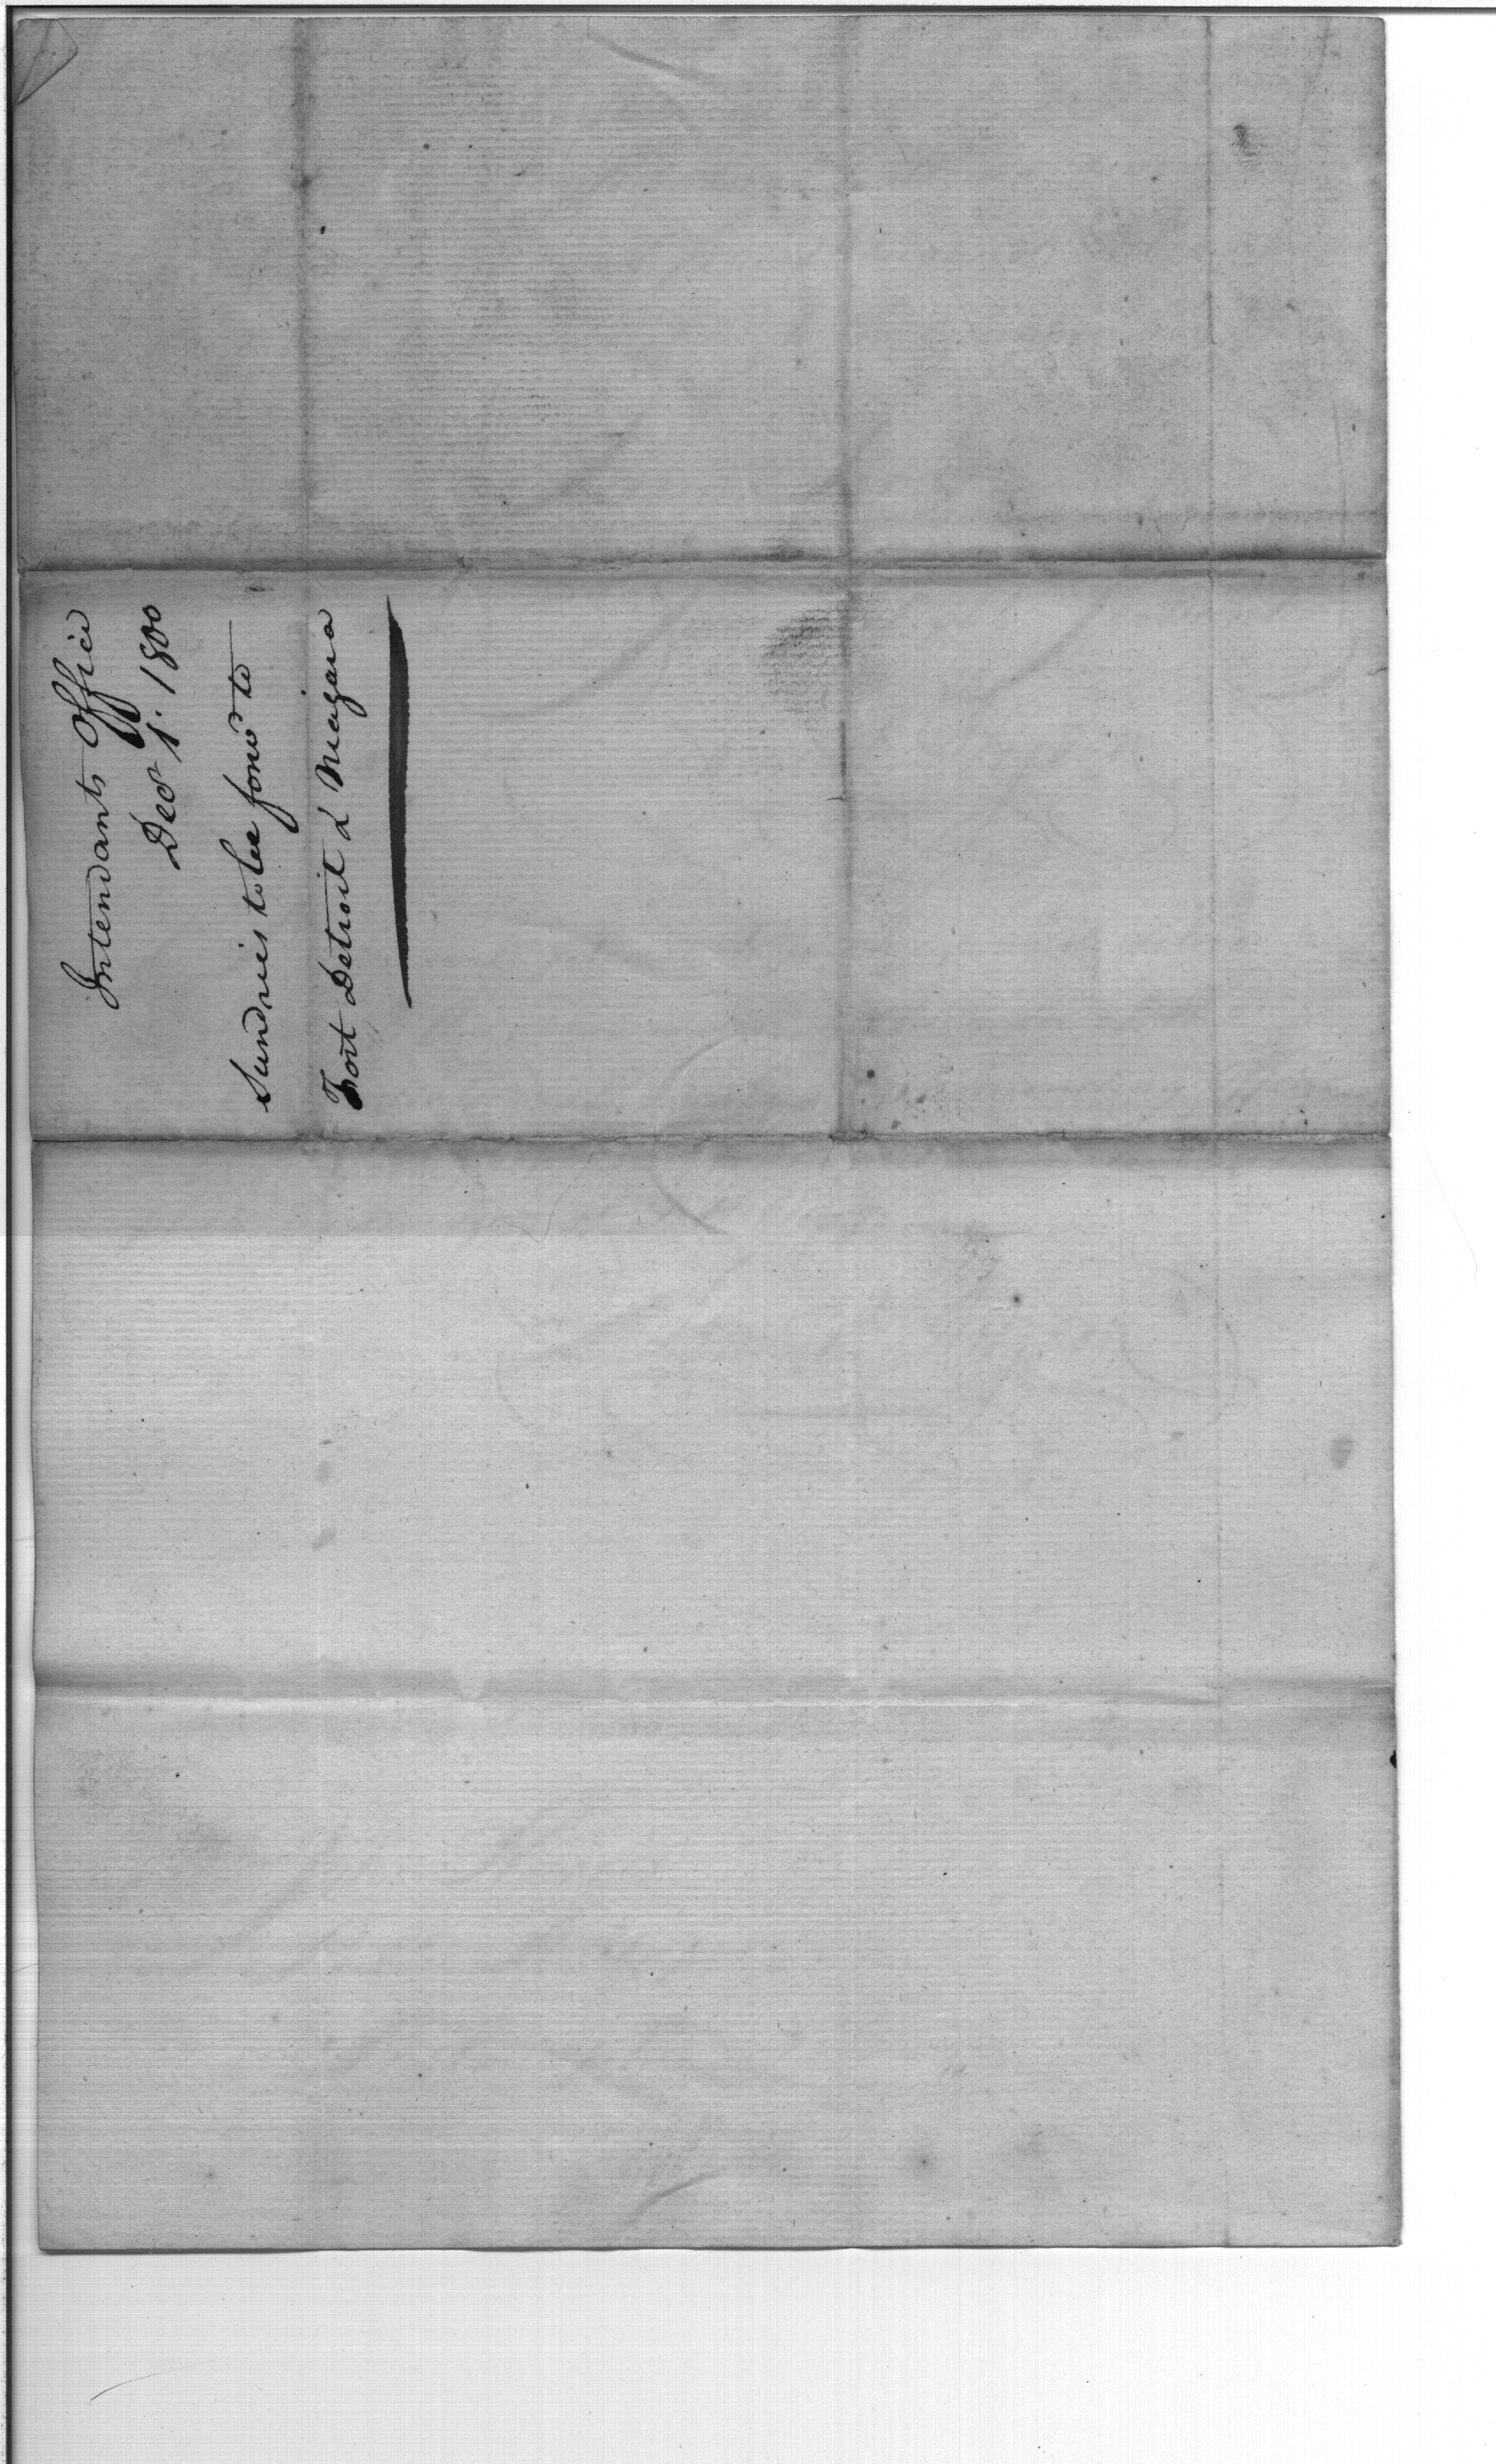 Intendants Office
Decr 1. 1800
Sundries to be forwd to
Fort Detroit & Niagara